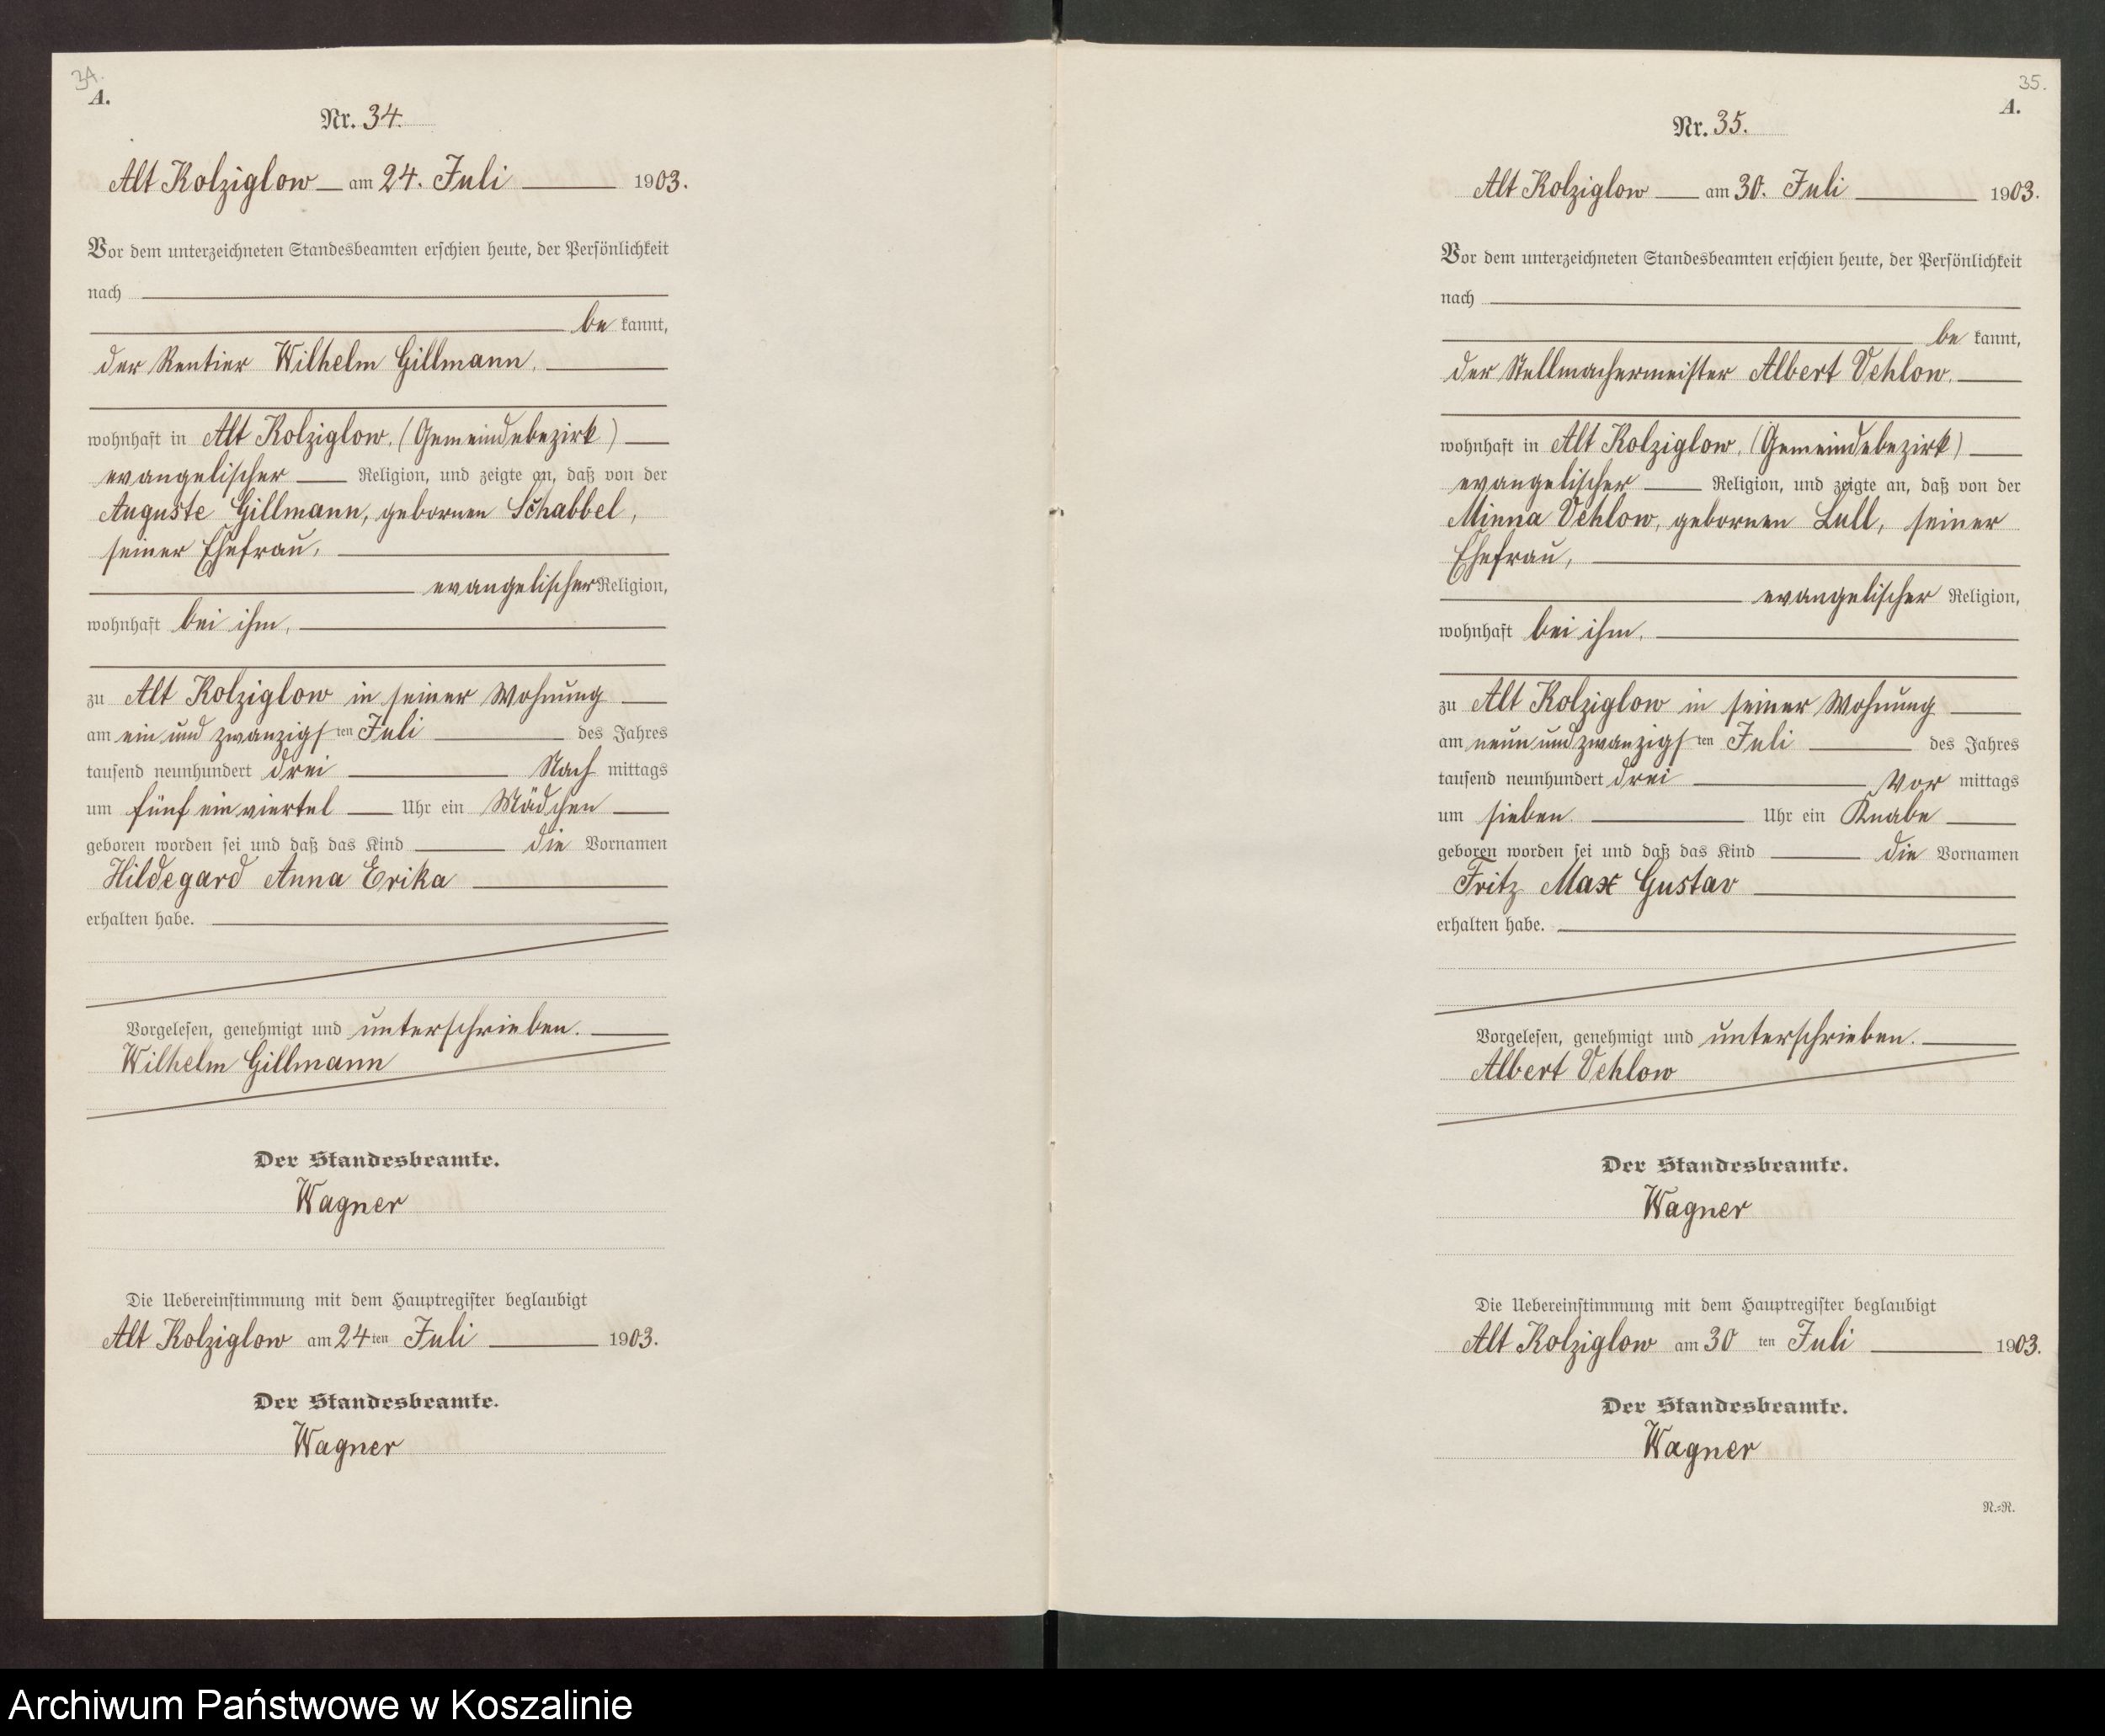 34.
A.
Nr. 34.
Alt Kolziglow am 24. Juli 1903.
Vor dem unterzeichneten Standesbeamten erschien heute, der Persönlichkeit
nach
be kannt,
der Rentier Wilhelm Gillmann,
wohnhaft in Alt Kolziglow, (Gemeindebezirk)
evangelischer Religion, und zeigte an, daß von der
Auguste Gillmann, gebornen Schabbel,
seiner Ehefrau,
evangelischer Religion,
wohnhaft bei ihm,
zu Alt Kolziglow in seiner Wohnung
am ein und zwanzigsten Juli des Jahres
tausend neunhundert drei Nach mittags
um fünf ein viertel Uhr ein Mädchen
geboren worden sei und daß das Kind die Vornamen
Hildegard Anna Erika
erhalten habe.
Vorgelesen, genehmigt und unterschrieben.
Wilhelm Gillmann
Der Standesbeamte.
Wagner
Die Uebereinstimmung mit dem Hauptregister beglaubigt
Alt Kolziglow am 24ten Juli 1903.
Der Standesbeamte.
Wagner
35.
A.
Nr. 35.
Alt Kolziglow am 30. Juli 1903.
Vor dem unterzeichneten Standesbeamten erschien heute, der Persönlichkeit
nach
be kannt,
der Stellmachermeister Albert Vehlow,
wohnhaft in Alt Kolziglow, (Gemeindebezirk)
evangelischer Religion, und zeigte an, daß von der
Minna Vehlow, gebornen Lull, seiner
Ehefrau,
evangelischer Religion,
wohnhaft bei ihm,
zu Alt Kolziglow in seiner Wohnung
am neun und zwanzigsten Juli des Jahres
tausend neunhundert drei Vor mittags
um sieben Uhr ein Knabe
geboren worden sei und daß das Kind die Vornamen
Fritz Max Gustav
erhalten habe.
Vorgelesen, genehmigt und unterschrieben.
Albert Vehlow
Der Standesbeamte.
Wagner
Die Uebereinstimmung mit dem Hauptregister beglaubigt
Alt Kolziglow am 30ten Juli 1903.
Der Standesbeamte.
Wagner
N.=R.
Archiwum Państwowe w Koszalinie